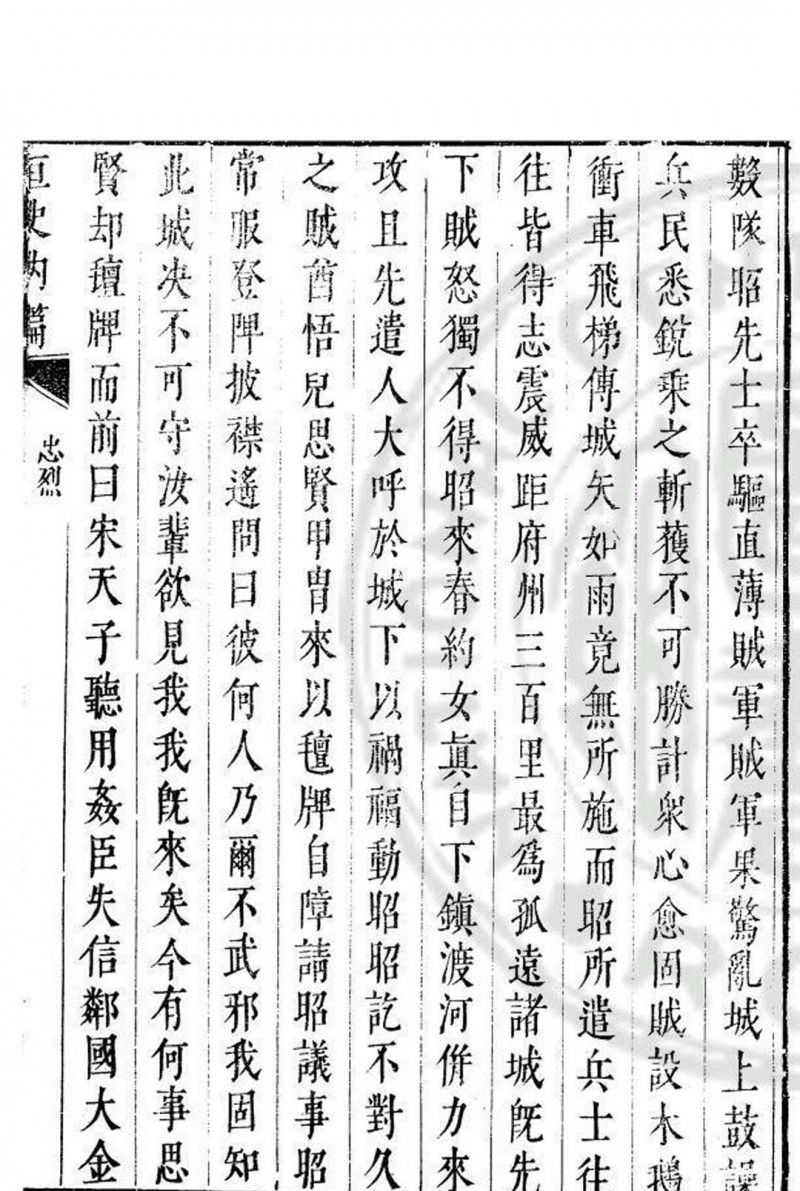 數隊昭先士卒驅直薄賊軍賊軍果驚亂城上鼓譟
兵民悉銳乘之斬獲不可勝計衆心愈固賊設木鵝
衝車飛梯傳城矢如雨竟無所施而昭所遣兵士往
往皆得志震威距府州三百里最爲孤遠諸城旣先
下賊怒獨不得昭來春約女眞自下鎮渡河併力來
攻且先遣人大呼於城下以禍福動昭昭訖不對久
之賊酋悟兒思賢甲冑來以氊牌自障請昭議事昭
常服登陴披襟遙問曰彼何人乃爾不武邪我固知
此城决不可守汝輩欲見我我旣來矣今有何事思
賢却氊牌而前曰宋天子聽用姦臣失信鄰國大金
亘史內篇
忠烈